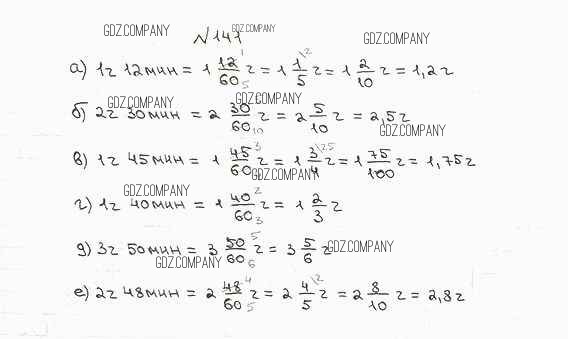 GDZ.COMPANY
№141
GDZ.COMPANY
GDZ.COMPANY
а) 1ч 12мин = 1 12/60 ч = 1 1/5 ч = 1 2/10 ч = 1,2ч
GDZ.COMPANY
GDZ.COMPANY
б) 2ч 30мин = 2 30/60 ч = 2 5/10 ч = 2,5ч
GDZ.COMPANY
в) 1ч 45мин = 1 45/60 ч = 1 3/4 ч = 1 75/100 ч = 1,75ч
GDZ.COMPANY
GDZ.COMPANY
г) 1ч 40мин = 1 40/60 ч = 1 2/3 ч
д) 3ч 50мин = 3 50/60 ч = 3 5/6 ч
GDZ.COMPANY
GDZ.COMPANY
е) 2ч 48мин = 2 48/60 ч = 2 4/5 ч = 2 8/10 ч = 2,8ч